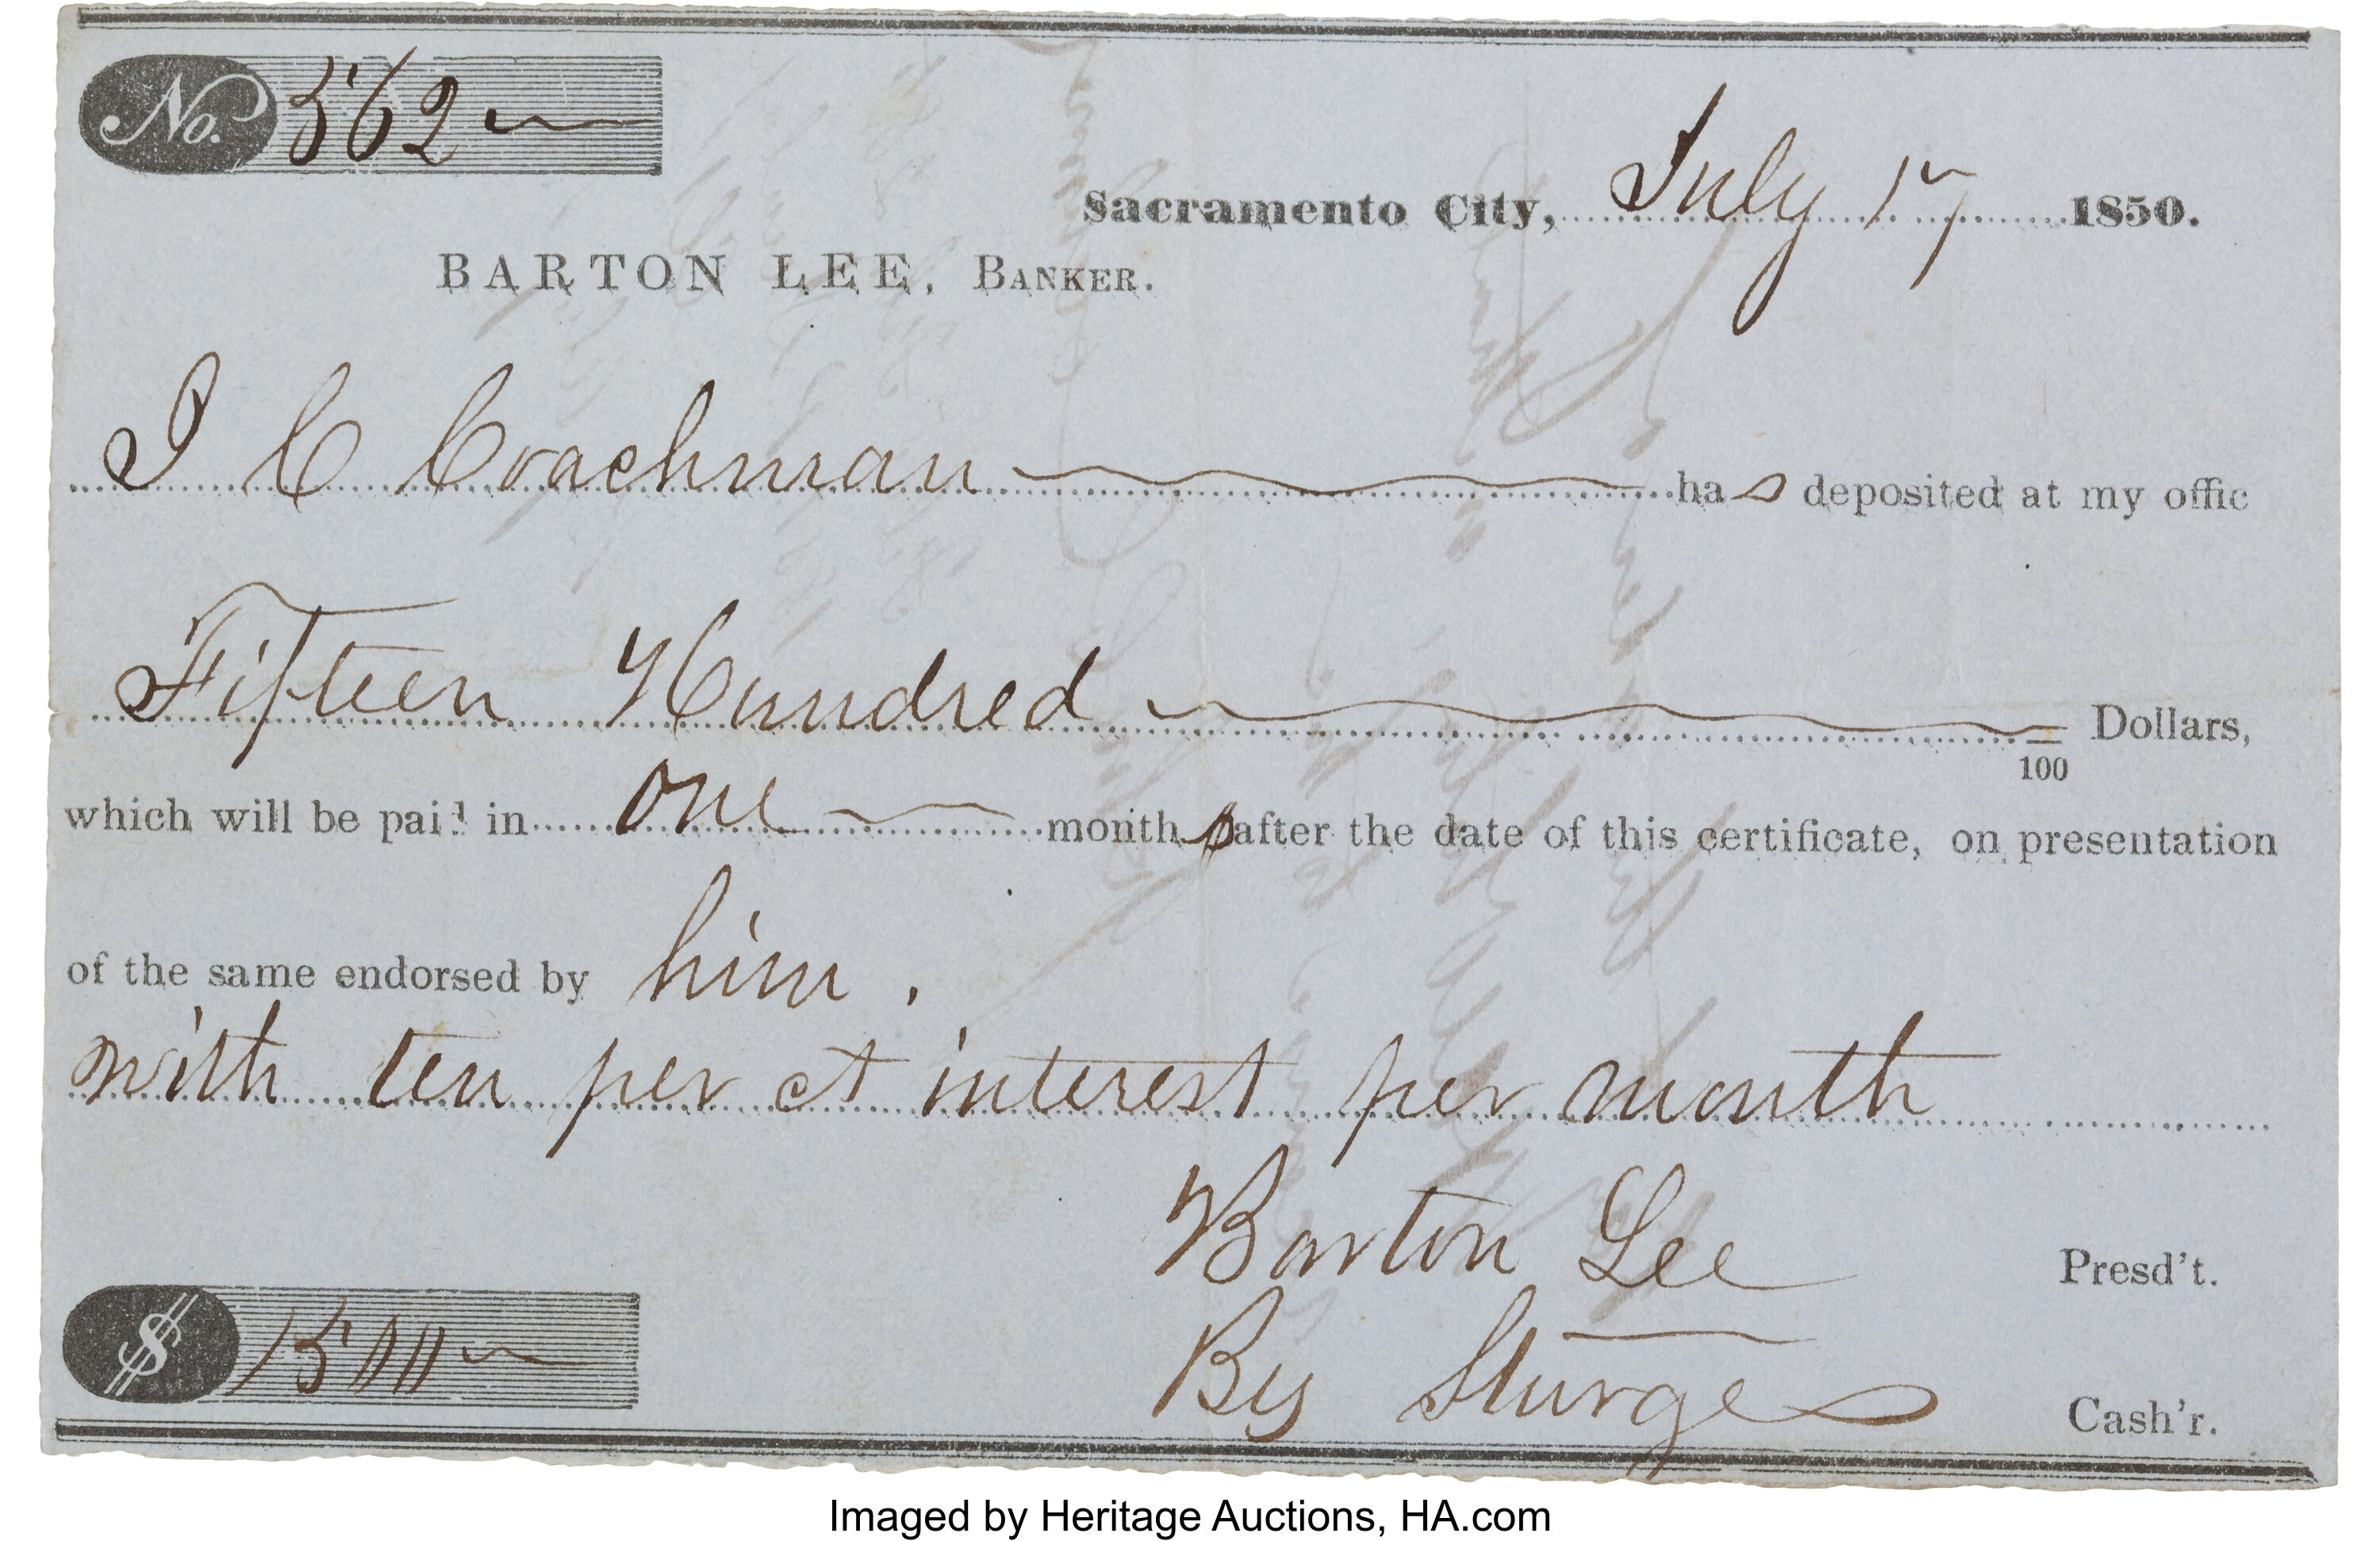 No. 562
Sacramento City, July 17 1850.
BARTON LEE, BANKER.
I C Coachman has deposited at my offic
Fifteen Hundred Dollars,
100
which will be paid in one month after the date of this certificate, on presentation
of the same endorsed by him.
with ten per ct interest per month
Barton Lee Presd't.
$ 1500
By Sturges Cash'r.
Imaged by Heritage Auctions, HA.com